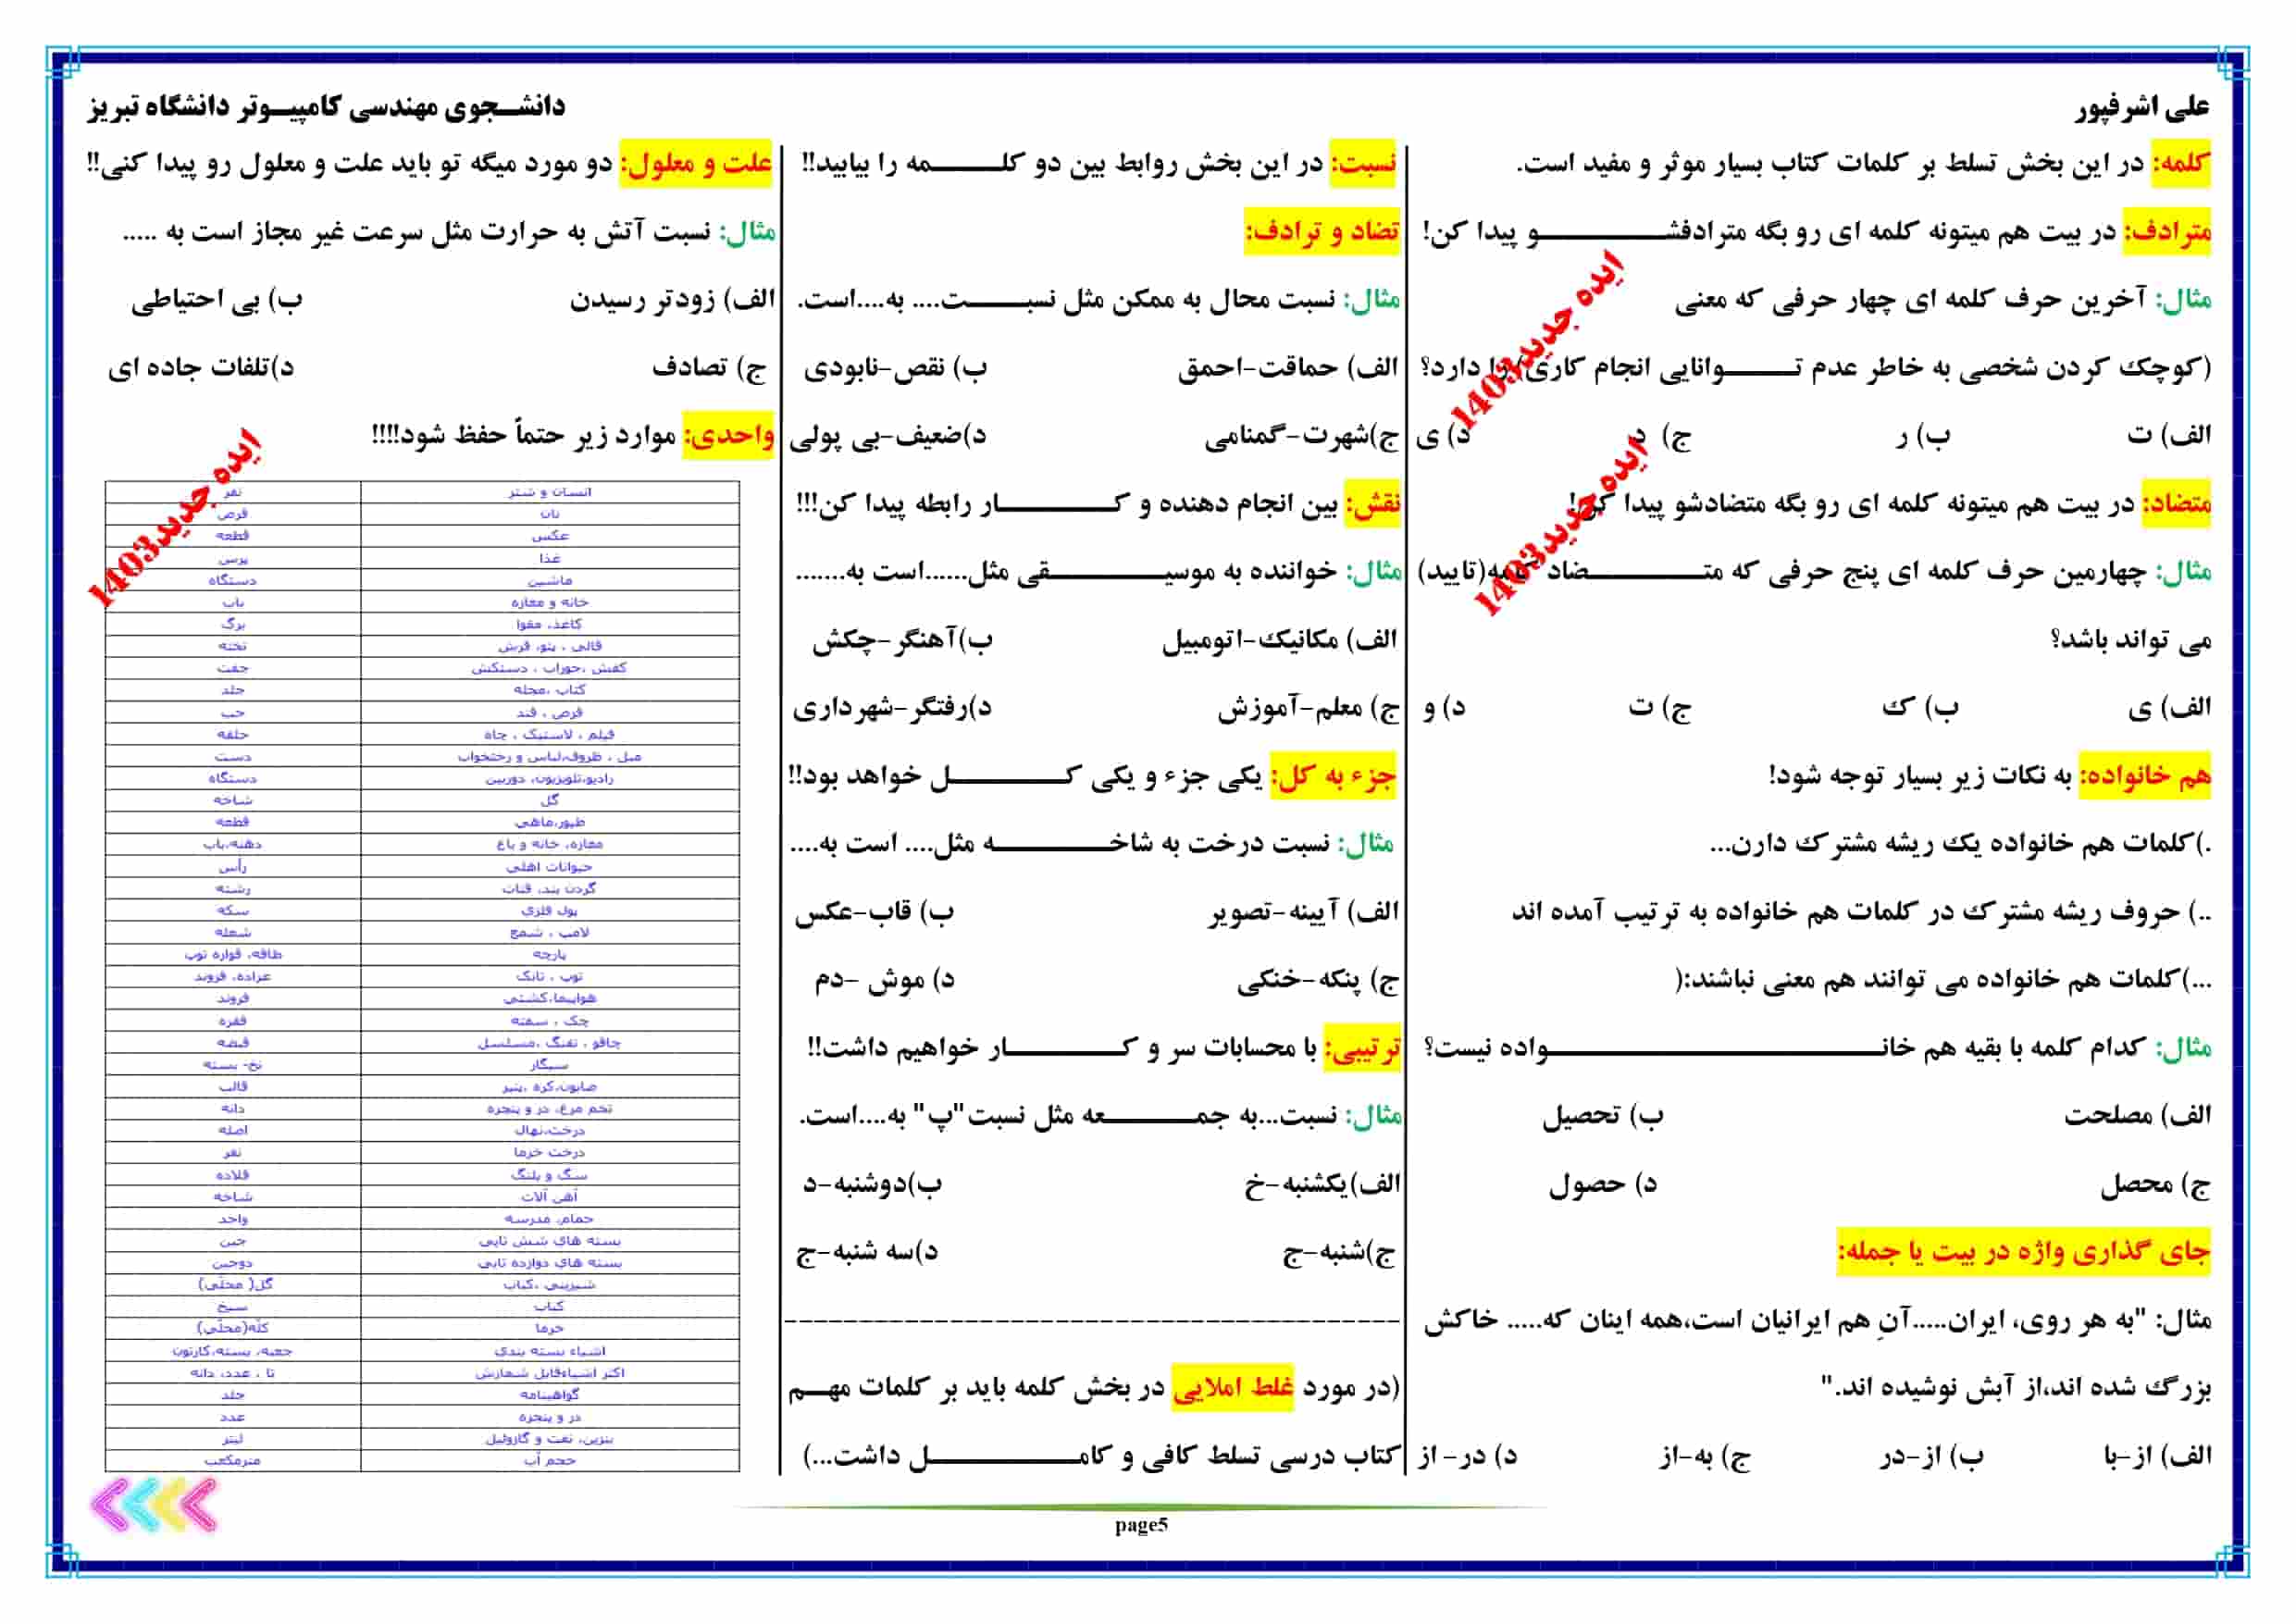 علی اشرفپور
دانشجوی مهندسی کامپیوتر دانشگاه تبریز
کلمه: در این بخش تسلط بر کلمات کتاب بسیار موثر و مفید است.
مترادف: در بیت هم میتونه کلمه ای رو بگه مترادفشو پیدا کن!
مثال: آخرین حرف کلمه ای چهار حرفی که معنی
(کوچک کردن شخصی به خاطر عدم توانایی انجام کاری) را دارد؟
الف) ت ب) ر ج) د د) ی
ایده جدید1403
متضاد: در بیت هم میتونه کلمه ای رو بگه متضادشو پیدا کن!
مثال: چهارمین حرف کلمه ای پنج حرفی که متضاد کلمه(تایید)
می تواند باشد؟
ایده جدید1403
الف) ی ب) ک ج) ت د) و
هم خانواده: به نکات زیر بسیار توجه شود!
.)کلمات هم خانواده یک ریشه مشترک دارن...
..) حروف ریشه مشترک در کلمات هم خانواده به ترتیب آمده اند
...)کلمات هم خانواده می توانند هم معنی نباشند:(
مثال: کدام کلمه با بقیه هم خانواده نیست؟
الف) مصلحت ب) تحصیل
ج) محصل د) حصول
جای گذاری واژه در بیت یا جمله:
مثال: "به هر روی، ایران.....آنِ هم ایرانیان است،همه اینان که..... خاکش
بزرگ شده اند،از آبش نوشیده اند."
الف) از-با ب) از-در ج) به-از د) در- از
نسبت: در این بخش روابط بین دو کلمه را بیابید!!
تضاد و ترادف:
مثال: نسبت محال به ممکن مثل نسبت.... به....است.
الف) حماقت-احمق ب) نقص-نابودی
ج)شهرت-گمنامی د)ضعیف-بی پولی
نقش: بین انجام دهنده و کار رابطه پیدا کن!!!
مثال: خواننده به موسیقی مثل......است به.......
الف) مکانیک-اتومبیل ب)آهنگر-چکش
ج) معلم-آموزش د)رفتگر-شهرداری
جزء به کل: یکی جزء و یکی کل خواهد بود!!
مثال: نسبت درخت به شاخه مثل.... است به....
الف) آیینه-تصویر ب) قاب-عکس
ج) پنکه-خنکی د) موش -دم
ترتیبی: با محسابات سر و کار خواهیم داشت!!
مثال: نسبت...به جمعه مثل نسبت "پ" به....است.
الف)یکشنبه-خ ب)دوشنبه-د
ج)شنبه-ج د)سه شنبه-ج
(در مورد غلط املایی در بخش کلمه باید بر کلمات مهم
کتاب درسی تسلط کافی و کامل داشت...)
علت و معلول: دو مورد میگه تو باید علت و معلول رو پیدا کنی!!
مثال: نسبت آتش به حرارت مثل سرعت غیر مجاز است به .....
الف) زودتر رسیدن ب) بی احتیاطی
ج) تصادف د)تلفات جاده ای
واحدی: موارد زیر حتماً حفظ شود!!!!
ایده جدید1403
انسان و شتر نفر
نان قرص
عکس قطعه
غذا پرس
ماشین دستگاه
خانه و مغازه باب
کاغذ، مقوا برگ
قالی ، پتو، فرش تخته
کفش ،جوراب ، دستکش جفت
کتاب ،مجله جلد
قرص ، قند حب
فیلم ، لاستیک ، چاه حلقه
مبل ، ظروف،لباس و رختخواب دست
رادیو،تلویزیون، دوربین دستگاه
گل شاخه
طیور،ماهی قطعه
مغازه، خانه و باغ دهنه،باب
حیوانات اهلی رأس
گردن بند، قنات رشته
پول فلزی سکه
لامپ ، شمع شعله
پارچه طاقه، قواره توپ
توپ ، تانک عراده، فروند
هواپیما،کشتی فروند
چک ، سفته فقره
چاقو ، تفنگ ،مسلسل قبضه
سیگار نخ- بسته
صابون،کره ،پنیر قالب
تخم مرغ، در و پنجره دانه
درخت،نهال اصله
درخت خرما نفر
سگ و پلنگ قلاده
آهن آلات شاخه
حمام، مدرسه واحد
بسته های شش تایی جین
بسته های دوازده تایی دوجین
شیرینی ،کباب گل( محلّی)
کباب سیخ
خرما کلّه(محلّی)
اشیاء بسته بندی جعبه، بسته،کارتون
اکثر اشیاءقابل شمارش تا ، عدد، دانه
گواهینامه جلد
در و پنجره عدد
بنزین، نفت و گازوئیل لیتر
حجم آب مترمکعب
page5